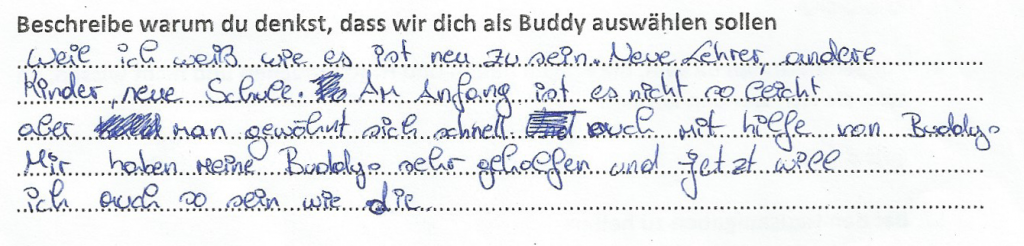 Beschreibe warum du denkst, dass wir dich als Buddy auswählen sollen
Weil ich weiß wie es ist neu zu sein. Neue Lehrer, andere
Kinder, neue Schule. Am Anfang ist es nicht so leicht
aber man gewöhnt sich schnell auch mit hilfe von Buddys
Mir haben meine Buddys sehr geholfen und jetzt will
ich auch so sein wie die